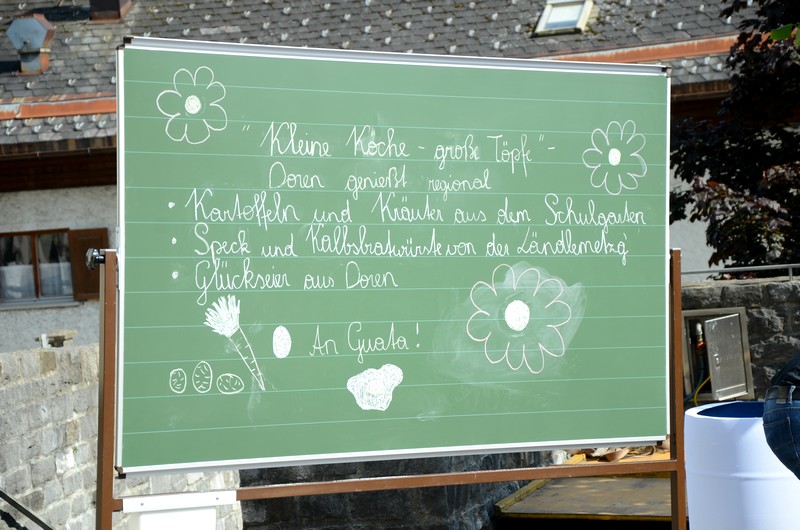 "Kleine Köche - große Töpfe" -
Doren genießt regional
• Kartoffeln und Kräuter aus dem Schulgarten
• Speck und Kalbsbratwürste von der Ländlemetzg
• Glückseier aus Doren
An Guata!